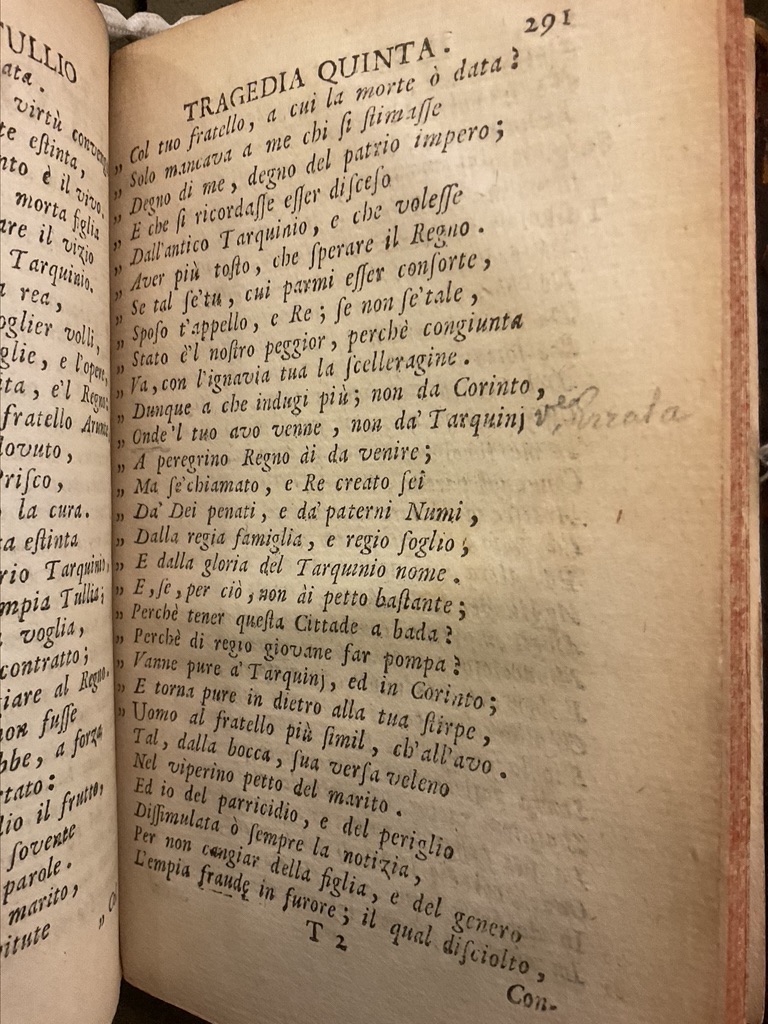 TULLIO
ata.
virtù
te eſtinta,
nto è il vivo.
morta figlia
are il vizio
Tarquinio.
a rea,
oglier volli,
glie, e l'opere,
ita, e'l Regno
fratello
dovuto,
Priſco,
la cura.
ta eſtinta
rio Tarquinio,
mpia Tullia;
voglia,
contratto;
iare al Regno.
non fuſſe
bbe, a forza
rtato:
lio il frutto,
ſovente
parole.
marito,
pitute
291
TRAGEDIA QUINTA.
„ Col tuo fratello, a cui la morte ò data?
„ Solo mancava a me chi ſi ſtimaſſe
„ Degno di me, degno del patrio impero;
„ E che ſi ricordaſſe eſſer diſceſo
„ Dall'antico Tarquinio, e che voleſſe
„ Aver più toſto, che ſperare il Regno.
„ Se tal ſe'tu, cui parmi eſſer conſorte,
„ Spoſo t'appello, e Re; ſe non ſe'tale,
„ Stato è'l noſtro peggior, perchè congiunta
„ Va, con l'ignavia tua la ſcelleragine.
„ Dunque a che indugi più; non da Corinto,
„ Onde'l tuo avo venne, non da' Tarquinj
„ A peregrino Regno ài da venire;
„ Ma ſe'chiamato, e Re creato ſei
„ Da' Dei penati, e da' paterni Numi,
„ Dalla regia famiglia, e regio ſoglio;
„ E dalla gloria del Tarquinio nome.
„ E, ſe, per ciò, non ài petto baſtante;
„ Perchè tener queſta Cittade a bada?
„ Perchè di regio giovane far pompa?
„ Vanne pure a' Tarquinj, ed in Corinto;
„ E torna pure in dietro alla tua ſtirpe,
„ Uomo al fratello più ſimil, ch'all'avo.
Tal, dalla bocca, ſua verſa veleno
Nel viperino petto del marito.
Ed io del parricidio, e del periglio
Diſſimulata ò ſempre la notizia,
Per non cangiar della figlia, e del genero
L'empia fraude in furore; il qual diſciolto,
T 2
Con-